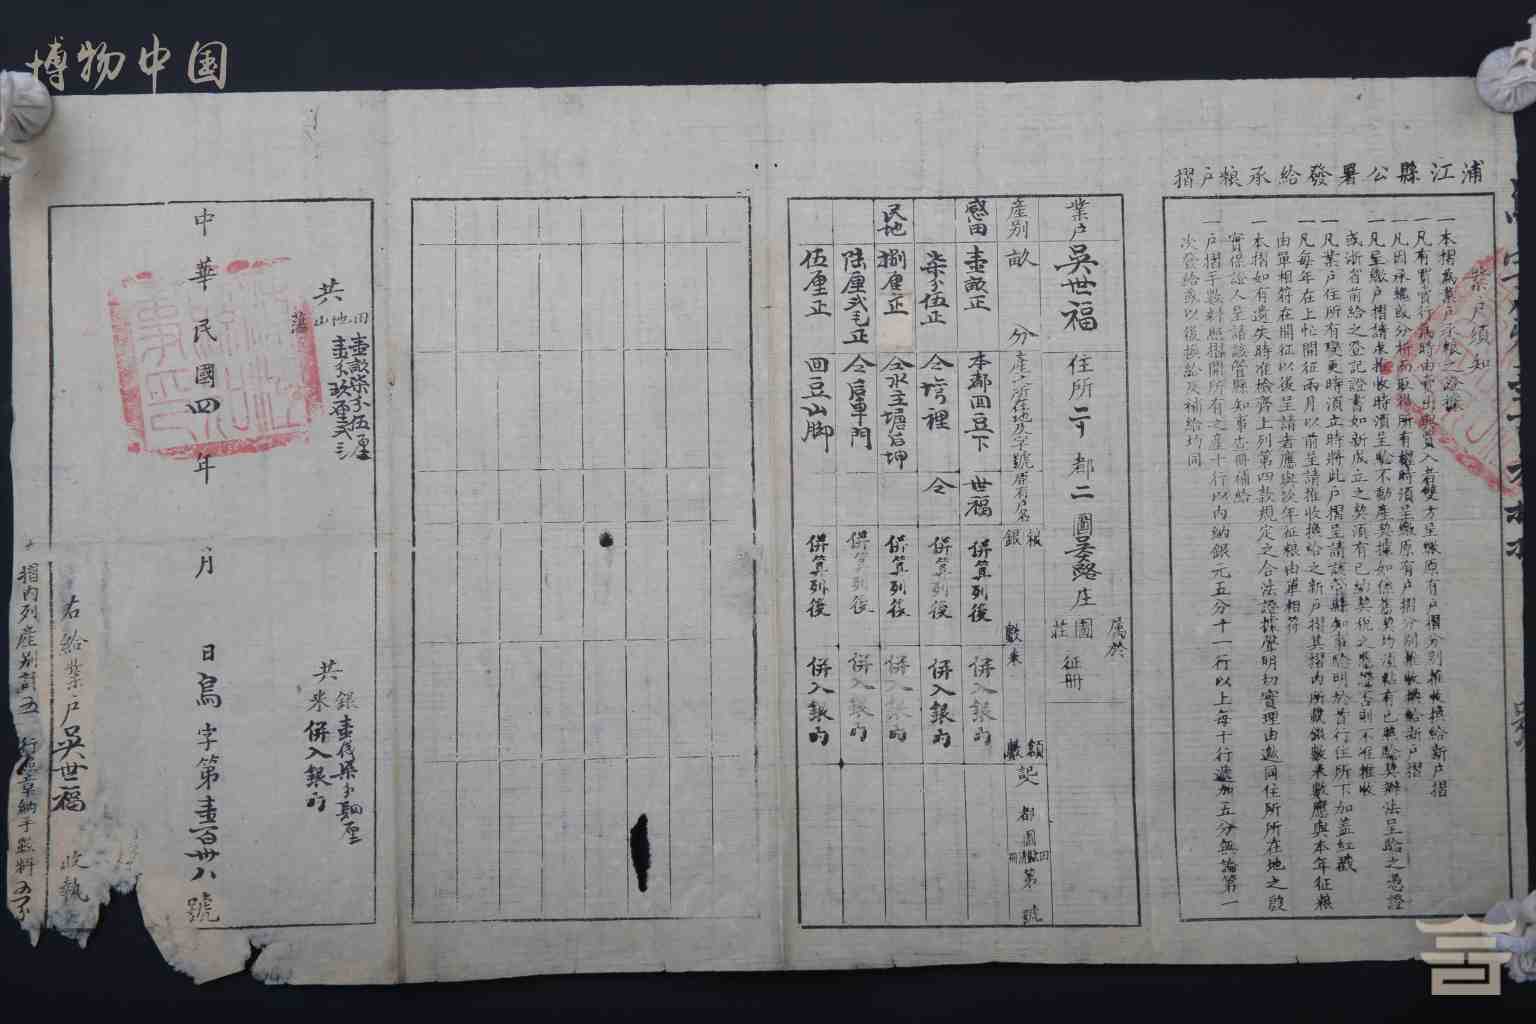 博物中国
浦江縣公署發給承粮户摺
業户須知
一本摺為業户承粮之證據
一凡有買賣行為時由賣出與買入者雙方呈繳原有户摺分別推收換給新户摺
一凡因承繼或分析而取得所有權時須呈繳原有户摺分別推收換給新户摺
一凡呈繳户摺請求推收時須呈驗不動産契據如係舊契均須粘有已驗契辦法呈驗之憑證
或浙省前給之登記證書如新成立之契須有已納契税之憑證否則不准推收
一凡業户住所有變更時須立時將此户摺呈請該管縣知事驗明於首行住所下加蓋紅戳
一凡每年在上忙開征兩月以前呈請推收換給之新户摺其摺内所載銀數米數應與本年征粮
由單相符在開征以後呈請者應與次年征粮由單相符
一本摺如有遺失時准檢齊上列第四款規定之合法證據聲明切實理由邀同住所所在地之殷
實保證人呈請該管縣知事查冊補給
一户摺手數料照摺開所有之産十行以内納銀元五分十一行以上每十行遞加五分無論第一
次發給或以後換給及補給均同
業户 吳世福 住所 二十都二圖吳谿庄
属於 圖 莊 征册
産別 畝 分 産之所在地及字號 原有户名 粮銀 數 米 額數 記 都圖田畝清冊第 號
慼田 壹畝正 本都四豆下 世福 併算列後 併入銀内
柒分伍正 仝塆裡 仝 併算列後 併入銀内
民地 捌厘正 仝水主塘后坤 併算列後 併入銀内
陸厘弍毛正 仝后車門 併算列後 併入銀内
伍厘正 四豆山脚 併算列後 併入銀内
共 田 地 山 蕩 壹畝柒分伍厘
共 銀
米 併入銀内
中華民國四年 月 日烏字第壹百卅八號
右給業户吳世福 收執
摺内列産別計五行應率納手數料五分